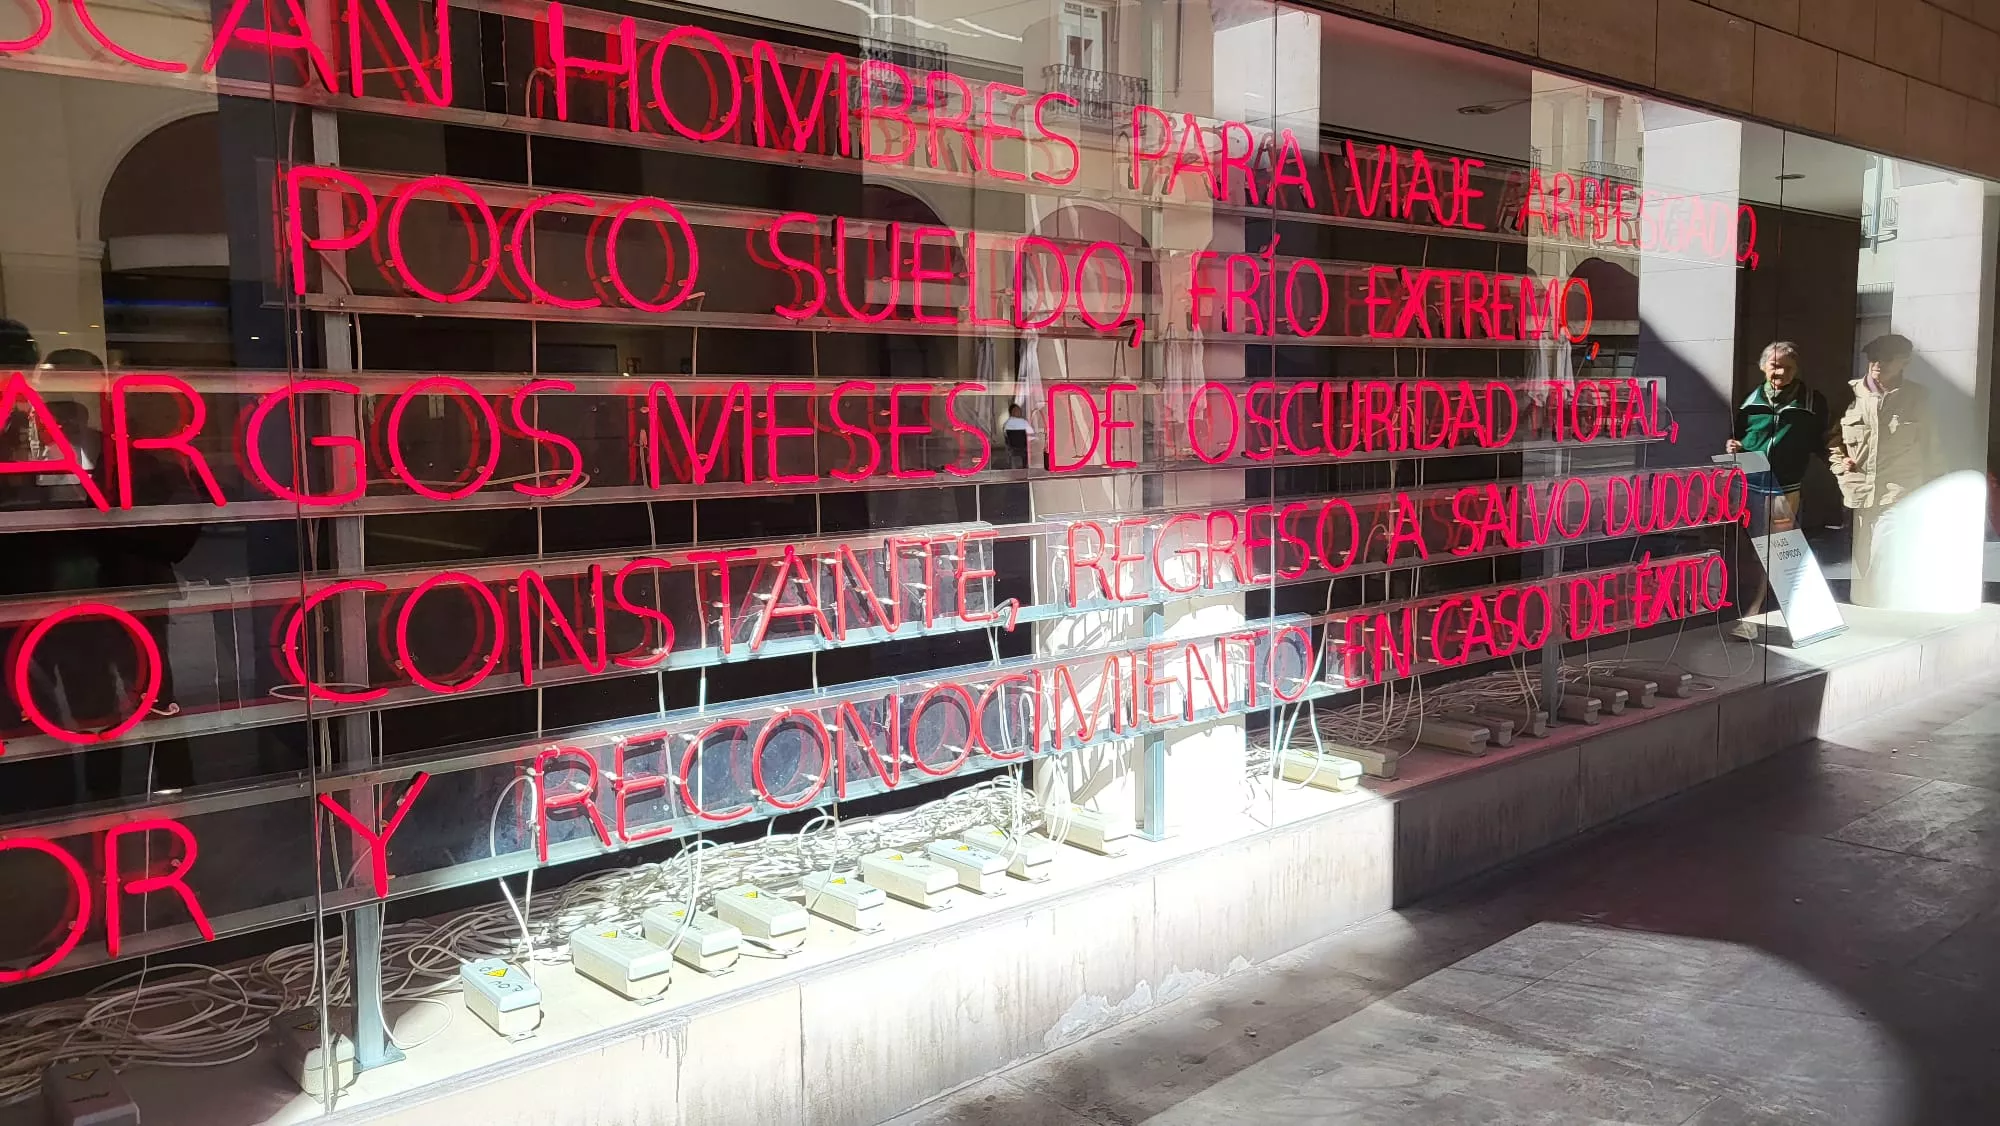 SCAN HOMBRES PARA VIAJE ARRIESGADO,
POCO SUELDO, FRÍO EXTREMO,
ARGOS MESES DE OSCURIDAD TOTAL,
O CONSTANTE, REGRESO A SALVO DUDOSO,
OR Y RECONOCIMIENTO EN CASO DE ÉXITO.
VIAJES
UTÓPICOS